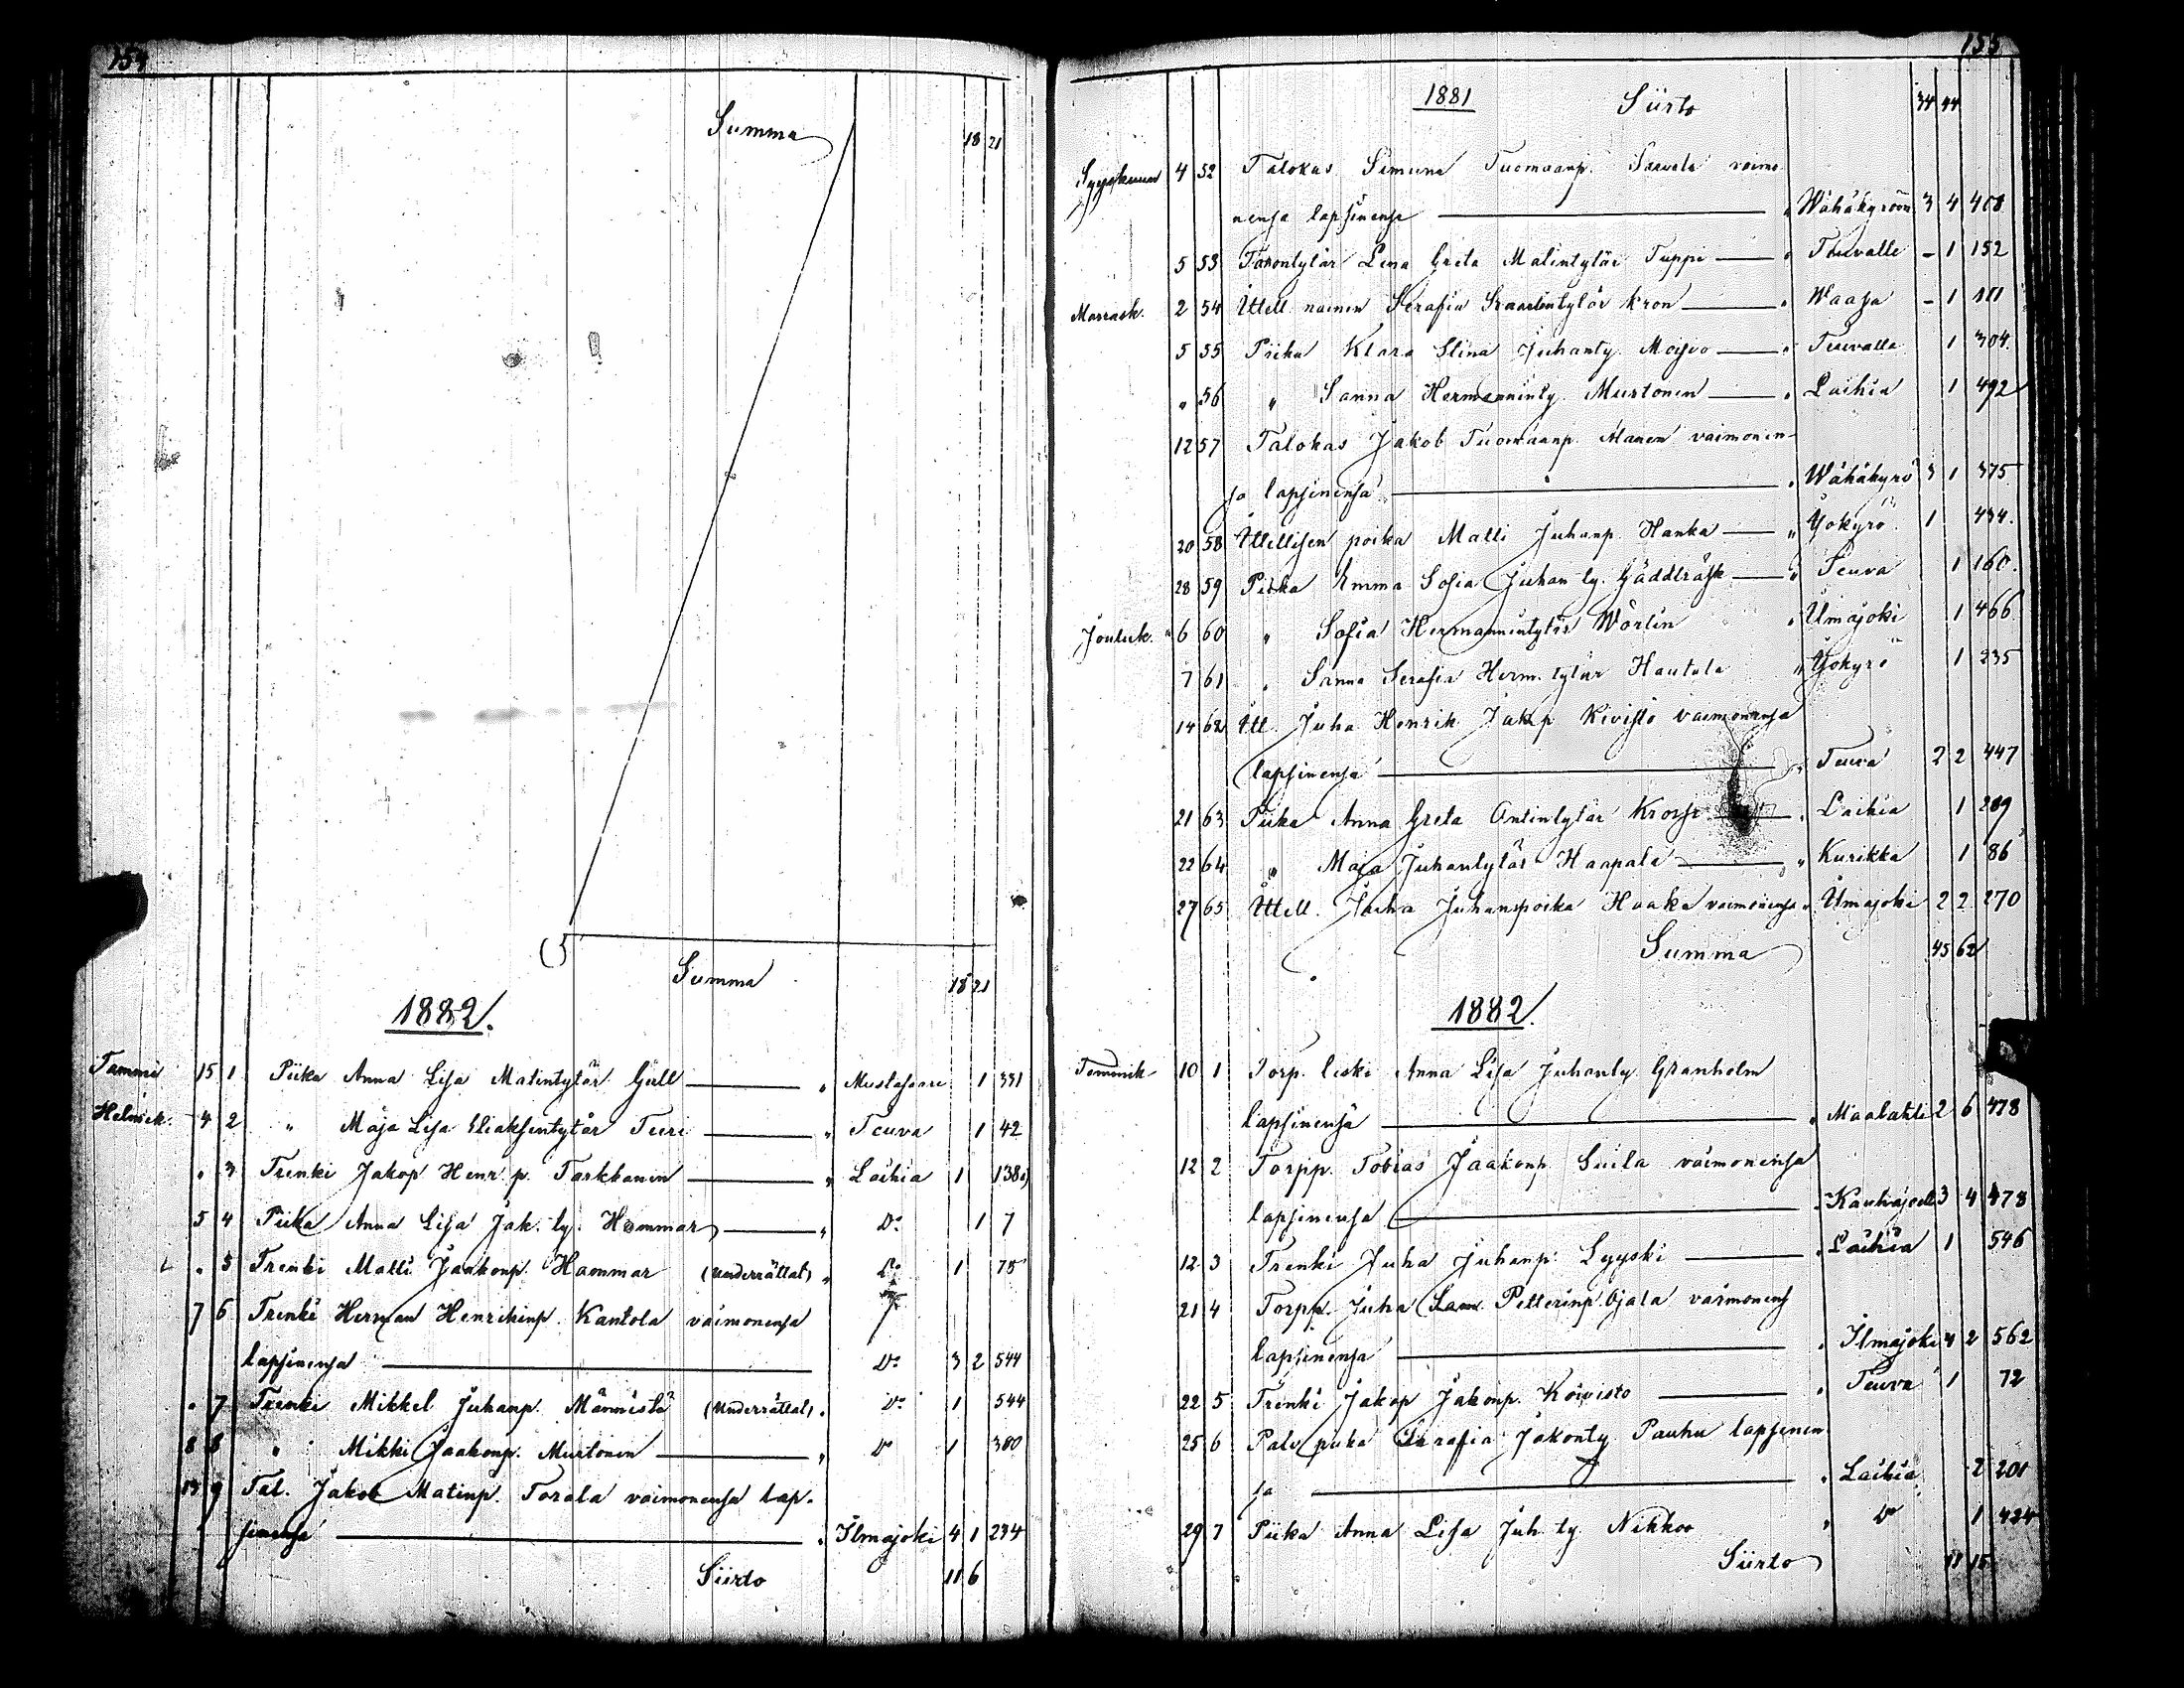 154
Summa 18 21
Summa 18 21
1882.
Tammi 15 1 Piika Anna Lisa Matintytär Gull " Mustasaari 1 331
Helmik. 4 2 " Maja Lisa Eliaksentytär Turi " Teuva 1 42
" 3 Trenki Jakop Henr. p. Tarkkanen " Laihia 1 138
5 4 Piika Anna Lisa Jak. ty. Hammar " Do 1 7
" 5 Trenki Matti Jaakonp. Hammar (Underrättat) " Do 1 75
7 6 Trenki Herman Henrikinp. Kantola vaimonensa
lapsinensa Do 3 2 544
" 7 Trenki Mikkel Juhanp. Männistö (Underrättat) " Do 1 544
8 8 " Mikki Jaakonp. Murtonen " Do 1 380
13 9 Tal. Jakob Matinp. Torala vaimonensa lap-
sinensa " Ilmajoki 4 1 234
Siirto 11 6
155
1881 Siirto 34 44
Syyskuun 4 52 Talokas Simuna Tuomaanp. Saevela vaimo-
nensa lapsinensa " Wähäkyröön 3 4 408
5 53 Talontytär Lena Greta Matintytär Tuppi " Teuvalle - 1 152
Marrask. 2 54 Itsell. nainen Serafia Kaarlentytär Kron " Waasa - 1 111
5 55 Piika Klara Stina Juhanty. Moisio " Teuvalle 1 304.
" 56 " Sanna Hermanninty. Murtonen " Laihia 1 492
12 57 Talokas Jakob Tuomaanp. Alanen vaimonen-
sa lapsinensa " Wähäkyrö 3 1 375
20 58 Itsellisen poika Matti Juhanp. Hanka " Isokyrö 1 434.
28 59 Piika Emma Sofia Juhan ty. Gäddträsk " Teuva 1 160.
Jouluk. 6 60 " Sofia Hermannintytär Wörlin " Ilmajoki 1 466
7 61 " Sanna Serafia Herm. tytär Hautala " Isokyrö 1 235
14 62 Its. Juha Henrik Jak.p Kivistö vaimonensa
lapsinensa " Teuva 2 2 447
21 63 Piika Anna Greta Antintytär Krosp " Laihia 1 289
22 64 " Maja Juhantytär Haapala " Kurikka 1 86
27 65 Itsell. Juha Juhanspoika Haaka vaimonensa " Ilmajoki 2 2 270
Summa 45 62
1882.
Tammik 10 1 Torp. leski Anna Lisa Juhanty Granholm
lapsinensa " Maalahti 2 6 478
12 2 Torpp. Tobias Jaakonp. Luila vaimonensa
lapsinensa " Kauhajoelle 3 4 478
12 3 Trenki Juha Juhanp. Lyyski " Laihia 1 546
21 4 Torpp. Juha Sam. Petterinp. Ojala vaimonens
lapsinensa " Ilmajoki 4 2 562
22 5 Trenki Jakop Jakonp. Koivisto " Teuva 1 72
25 6 Palv piika Serafia Jakonty. Pauhu lapsinen
sa " Laihia 2 201
29 7 Piika Anna Lisa Juh. ty. Nikkoo " Do 1 424
Siirto 11 15